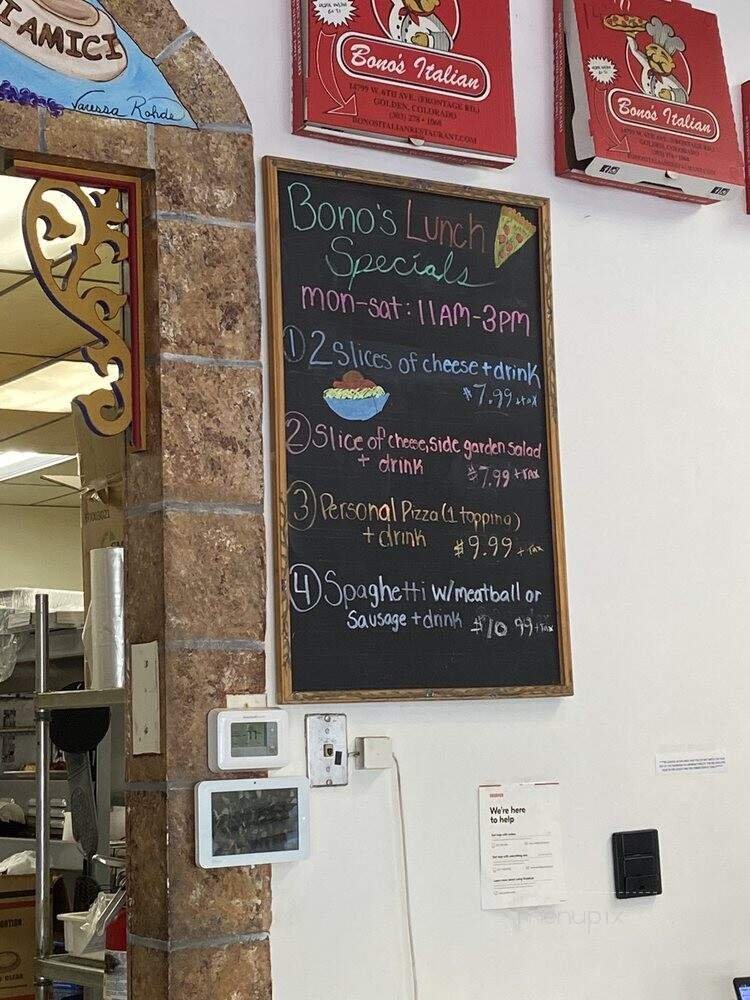 I AMICI
Vanessa Rohde
Bono's Italian
14799 W. 6TH AVE. (FRONTAGE RD.)
GOLDEN, COLORADO
(303) 278 • 1068
BONOSITALIANRESTAURANT.COM
Bono's Italian
14799 W. 6TH AVE. (FRONTAGE RD.)
GOLDEN, COLORADO
(303) 278 • 1068
BONOSITALIANRESTAURANT.COM
Bono's Lunch
Specials
mon-sat: 11AM-3PM
1 2 Slices of cheese + drink
$7.99 + tax
2 Slice of cheese, side garden salad
+ drink $7.99 + tax
3 Personal Pizza (1 topping)
+ drink $9.99 + tax
4 Spaghetti w/meatball or
Sausage + drink $10 99 + Tax
We're here
to help
menupix